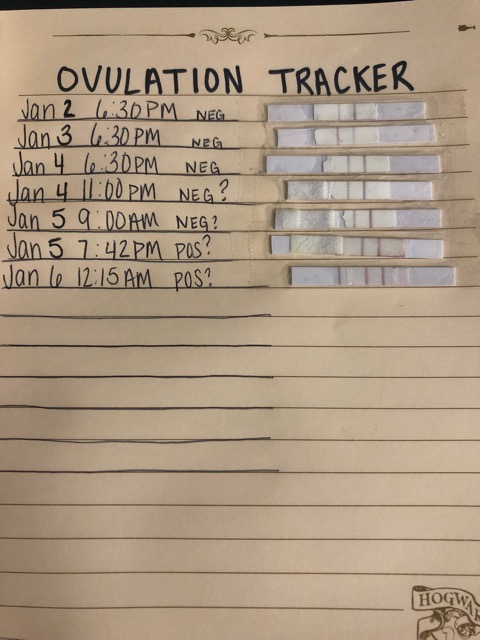 OVULATION TRACKER
Jan 2 6:30PM NEG
Jan 3 6:30PM NEG
Jan 4 6:30PM NEG
Jan 4 11:00PM NEG?
Jan 5 9:00AM NEG?
Jan 5 7:42PM POS?
Jan 6 12:15AM POS?
HOGWA